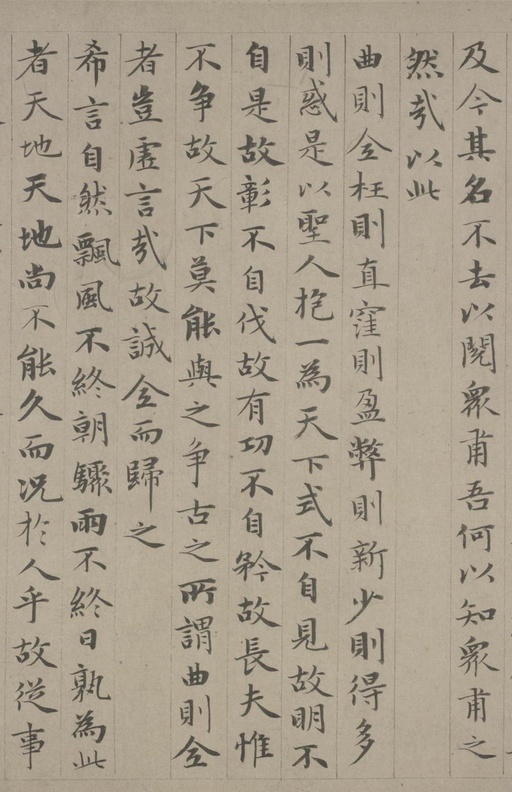 及今其名不去以閱衆甫吾何以知衆甫之
然哉以此
曲則全枉則直窪則盈弊則新少則得多
則惑是以聖人抱一為天下式不自見故明不
自是故彰不自伐故有功不自矜故長夫惟
不争故天下莫能與之争古之所謂曲則全
者豈虛言哉故誠全而歸之
希言自然飄風不終朝驟雨不終日孰為此
者天地天地尚不能久而況於人乎故從事